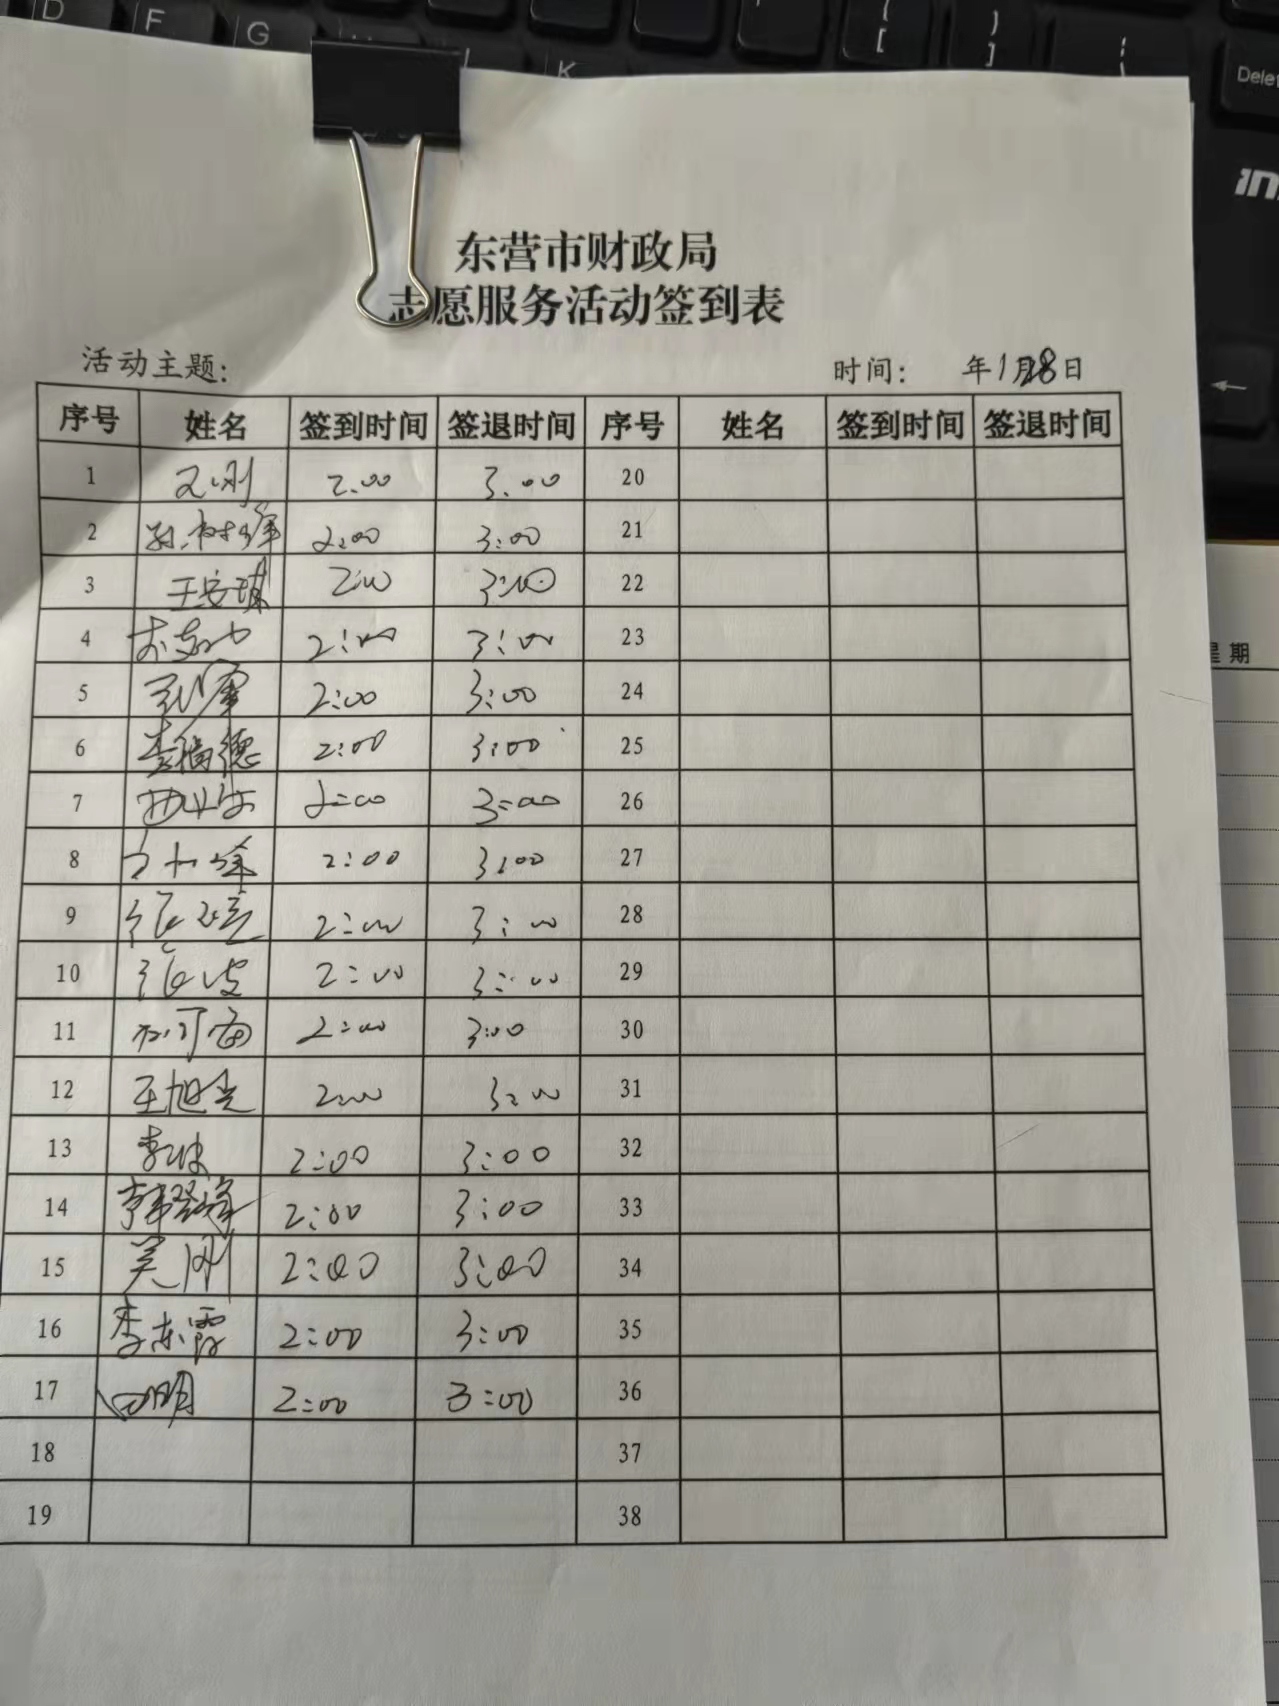 D F G K
{ [ } ]
Dele
东营市财政局
志愿服务活动签到表
活动主题: 时间: 年1月28日
序号 姓名 签到时间 签退时间 序号 姓名 签到时间 签退时间
1 2.00 3.00 20
2 2:00 3:00 21
3 王安琪 2:00 3:00 22
4 2:00 3:00 23
5 2:00 3:00 24
星期
6 李福德 2:00 3:00 25
7 2:00 3:00 26
8 2:00 3:00 27
9 2:00 3:00 28
10 张波 2:00 3:00 29
11 2:00 3:00 30
12 王旭光 2:00 3:00 31
13 李坤 2:00 3:00 32
14 2:00 3:00 33
15 吴刚 2:00 3:00 34
16 李东霞 2:00 3:00 35
17 2:00 3:00 36
18 37
19 38